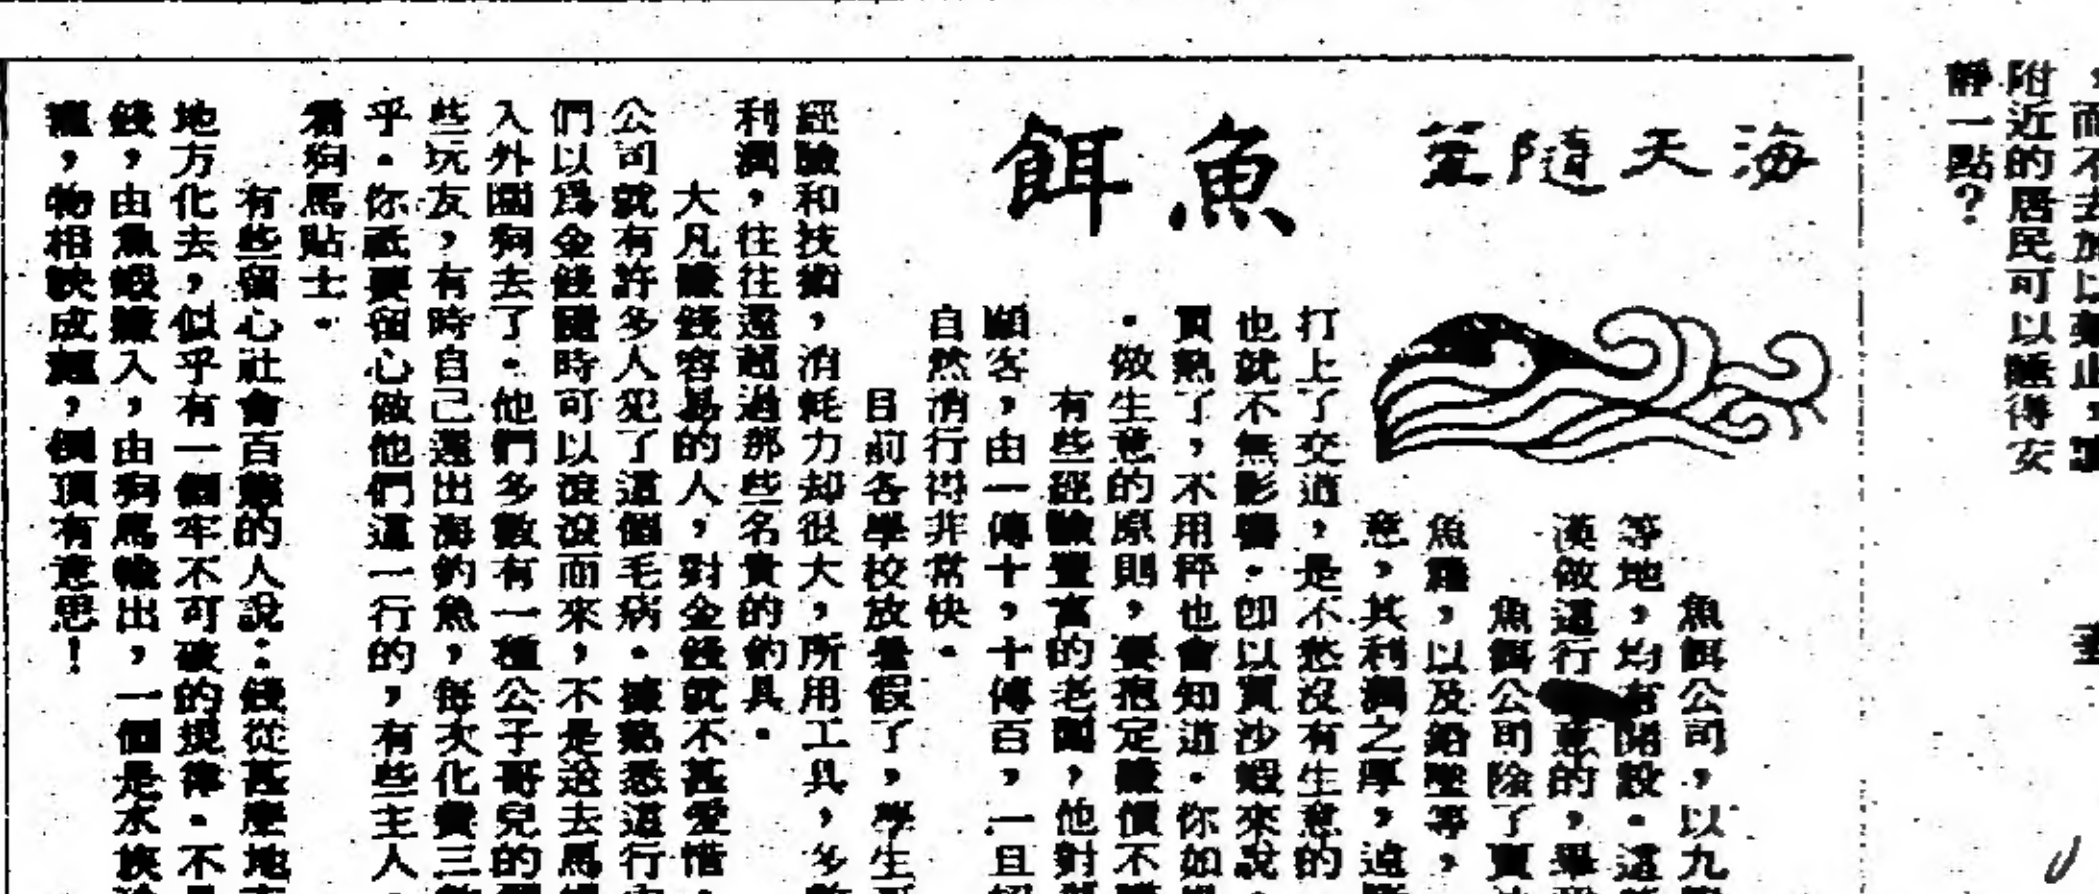 ，而不去加以禁止，讓
附近的居民可以睡得安
靜一點？
海天隨筆
魚餌
魚餌公司，以九
等地，均有開設．這
漢做這行　意的，舉
魚餌公司除了賣
魚羅，以及鉛墜等，
意，其利潤之厚，遠
打上了交道，是不愁沒有生意的
也就不無影響．卽以買沙蝦來說，
買熟了，不用秤也會知道．你如
．做生意的原則，要抱定賺價不
有些經驗豐富的老闆，他對
顧客，由一傳十，十傳百，一旦
自然消行得非常快．
目前各學校放暑假了，學生
經驗和技術，消耗力却很大，所用工具，多
利潤，往往還超過那些名貴的釣具．
大凡賺錢容易的人，對金錢就不甚愛惜．
公司就有許多人犯了這個毛病．據熟悉這行
們以爲金錢隨時可以滾滾而來，不是送去馬
入外圍狗去了．他們多數有一種公子哥兒的
些玩友，有時自己還出海釣魚，每次化費三
乎．你祇要留心做他們這一行的，有些主人，
看狗馬貼士．
有些留心社會百態的人說：錢從甚麼地
地方化去，似乎有一個牢不可破的規律．不
錢，由魚蝦賺入，由狗馬輸出，一個是水族
，物相映成趣，倒頂有意思！